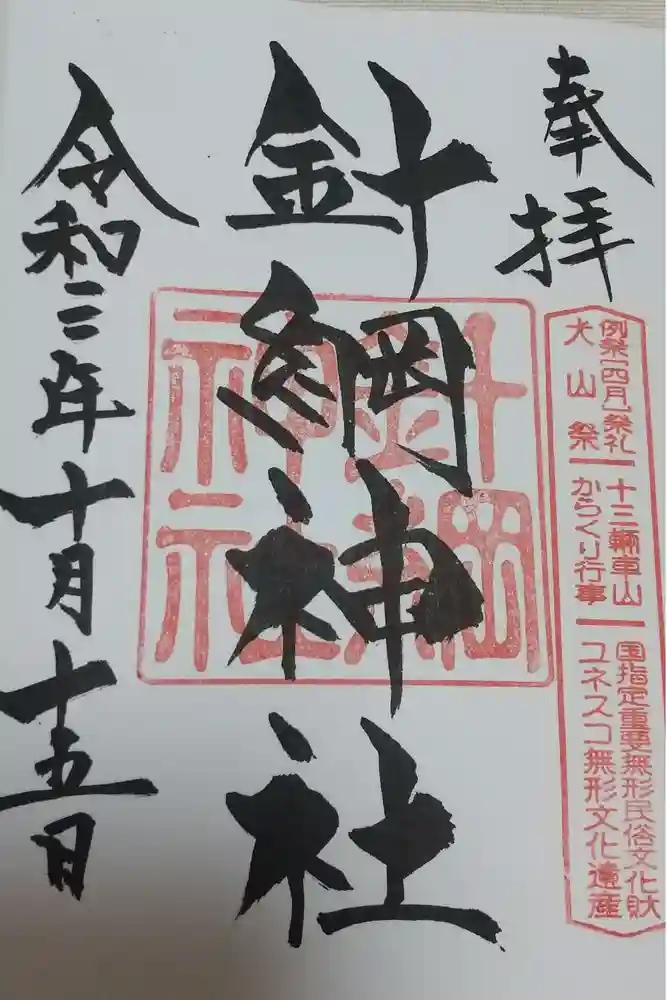 奉拝
例祭(四月)祭礼 十三輛車山 国指定重要無形民俗文化財
犬山祭 からくり行事 ユネスコ無形文化遺産
針綱神社
針綱
神社
令和三年十月十五日